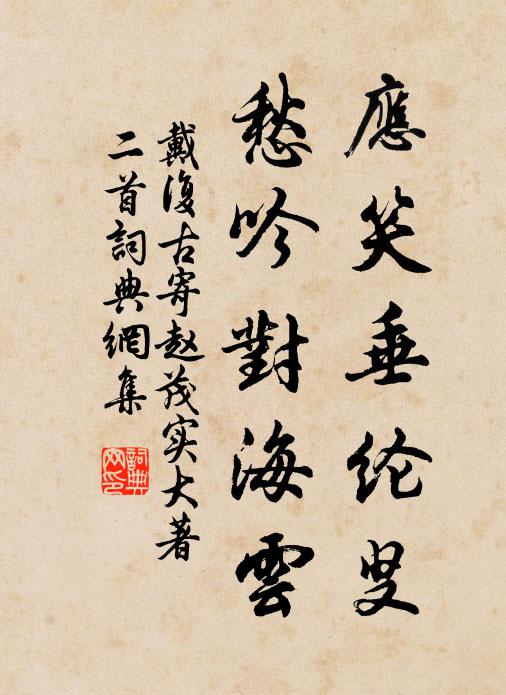 應笑垂纶叟
愁吟對海雲
戴復古寄赵茂实大著
二首詞典網集
詞典
网印